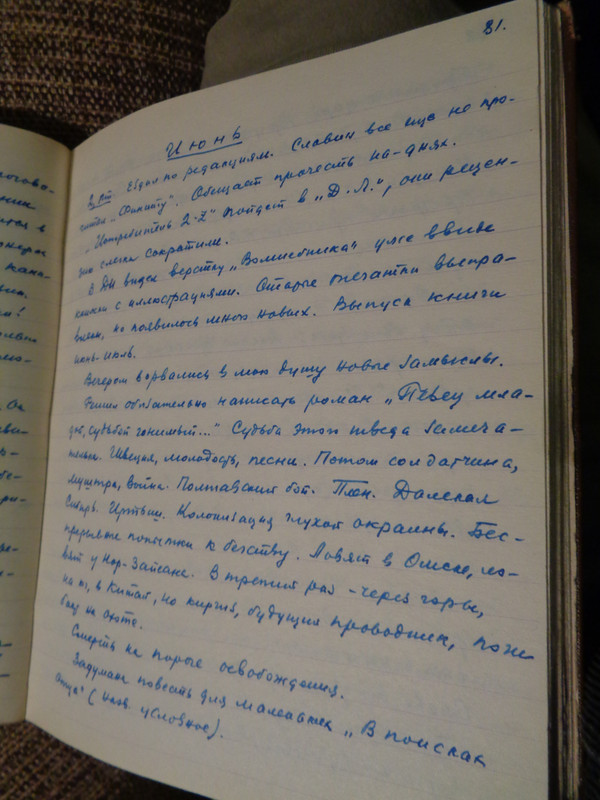 огово-
ник
ится в
неры
кана-
81.
Июнь
Ездил по редакциям. Славин все еще не про-
читал Обещает прочесть на-днях.
„Истребитель 2-Z" пойдет в „Д.Л.", они рецен-
зию слегка сократили.
В ДИ видел верстку „Волшебника" уже в виде
книжки с иллюстрациями. Старые опечатки выпра-
влены, но появилось много новых. Выпуск книги
июнь-июль.
Вечером ворвались в мою душу новые замыслы.
Решил обязательно написать роман „Певец мла-
дой, судьбой гонимый..." Судьба этого шведа замеча-
тельна. Швеция, молодость, песни. Потом солдатчина,
муштра, война. Полтавский бой. Плен. Далекая
Сибирь. Иртыш. Колонизация глухой окраины. Бес-
прерывные попытки к бегству. Ловят в Омске, ло-
вят у Нор-Зайсана. В третий раз - через горы,
на ю, в Китай, но киргиз, будущий проводник, поги
бает на охоте.
Смерть на пороге освобождения.
Задумал повесть для маленьких „В поисках
отца" (назв. условное).